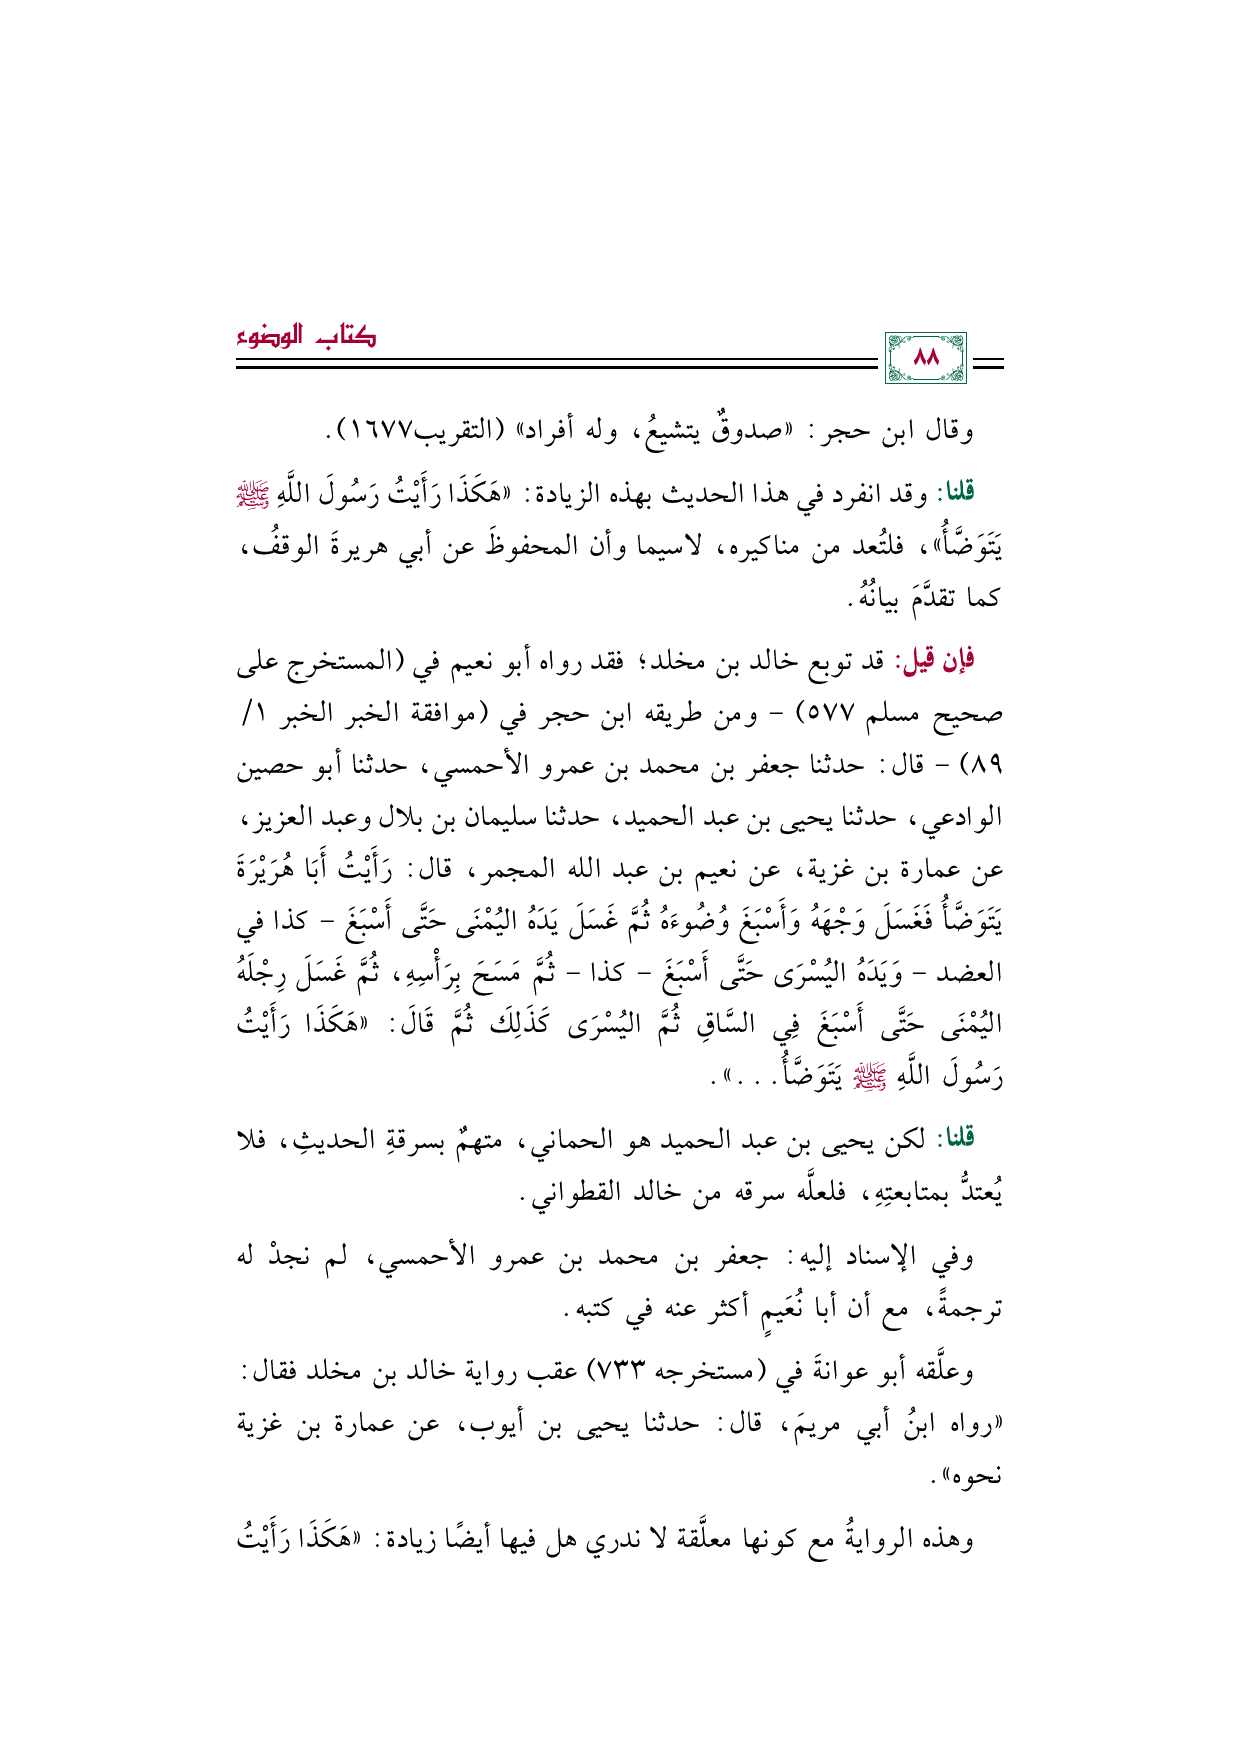 كتاب الوضوء
٨٨
وقال ابن حجر: «صدوقٌ يتشيعُ، وله أفراد» (التقريب١٦٧٧).
قلنا: وقد انفرد في هذا الحديث بهذه الزيادة: «هَكَذَا رَأَيْتُ رَسُولَ اللَّهِ ﷺ
يَتَوَضَّأُ»، فلتُعد من مناكيره، لاسيما وأن المحفوظَ عن أبي هريرةَ الوقفُ،
كما تقدَّمَ بيانُهُ.
فإن قيل: قد توبع خالد بن مخلد؛ فقد رواه أبو نعيم في (المستخرج على
صحيح مسلم ٥٧٧) - ومن طريقه ابن حجر في (موافقة الخبر الخبر ١/
٨٩) - قال: حدثنا جعفر بن محمد بن عمرو الأحمسي، حدثنا أبو حصين
الوادعي، حدثنا يحيى بن عبد الحميد، حدثنا سليمان بن بلال وعبد العزيز،
عن عمارة بن غزية، عن نعيم بن عبد الله المجمر، قال: رَأَيْتُ أَبَا هُرَيْرَةَ
يَتَوَضَّأُ فَغَسَلَ وَجْهَهُ وَأَسْبَغَ وُضُوءَهُ ثُمَّ غَسَلَ يَدَهُ اليُمْنَى حَتَّى أَسْبَغَ - كذا في
العضد - وَيَدَهُ اليُسْرَى حَتَّى أَسْبَغَ - كذا - ثُمَّ مَسَحَ بِرَأْسِهِ، ثُمَّ غَسَلَ رِجْلَهُ
اليُمْنَى حَتَّى أَسْبَغَ فِي السَّاقِ ثُمَّ اليُسْرَى كَذَلِكَ ثُمَّ قَالَ: «هَكَذَا رَأَيْتُ
رَسُولَ اللَّهِ ﷺ يَتَوَضَّأُ...».
قلنا: لكن يحيى بن عبد الحميد هو الحماني، متهمٌ بسرقةِ الحديثِ، فلا
يُعتدُّ بمتابعتِهِ، فلعلَّه سرقه من خالد القطواني.
وفي الإسناد إليه: جعفر بن محمد بن عمرو الأحمسي، لم نجدْ له
ترجمةً، مع أن أبا نُعَيمٍ أكثر عنه في كتبه.
وعلَّقه أبو عوانةَ في (مستخرجه ٧٣٣) عقب رواية خالد بن مخلد فقال:
«رواه ابنُ أبي مريمَ، قال: حدثنا يحيى بن أيوب، عن عمارة بن غزية
نحوه».
وهذه الروايةُ مع كونها معلَّقة لا ندري هل فيها أيضًا زيادة: «هَكَذَا رَأَيْتُ